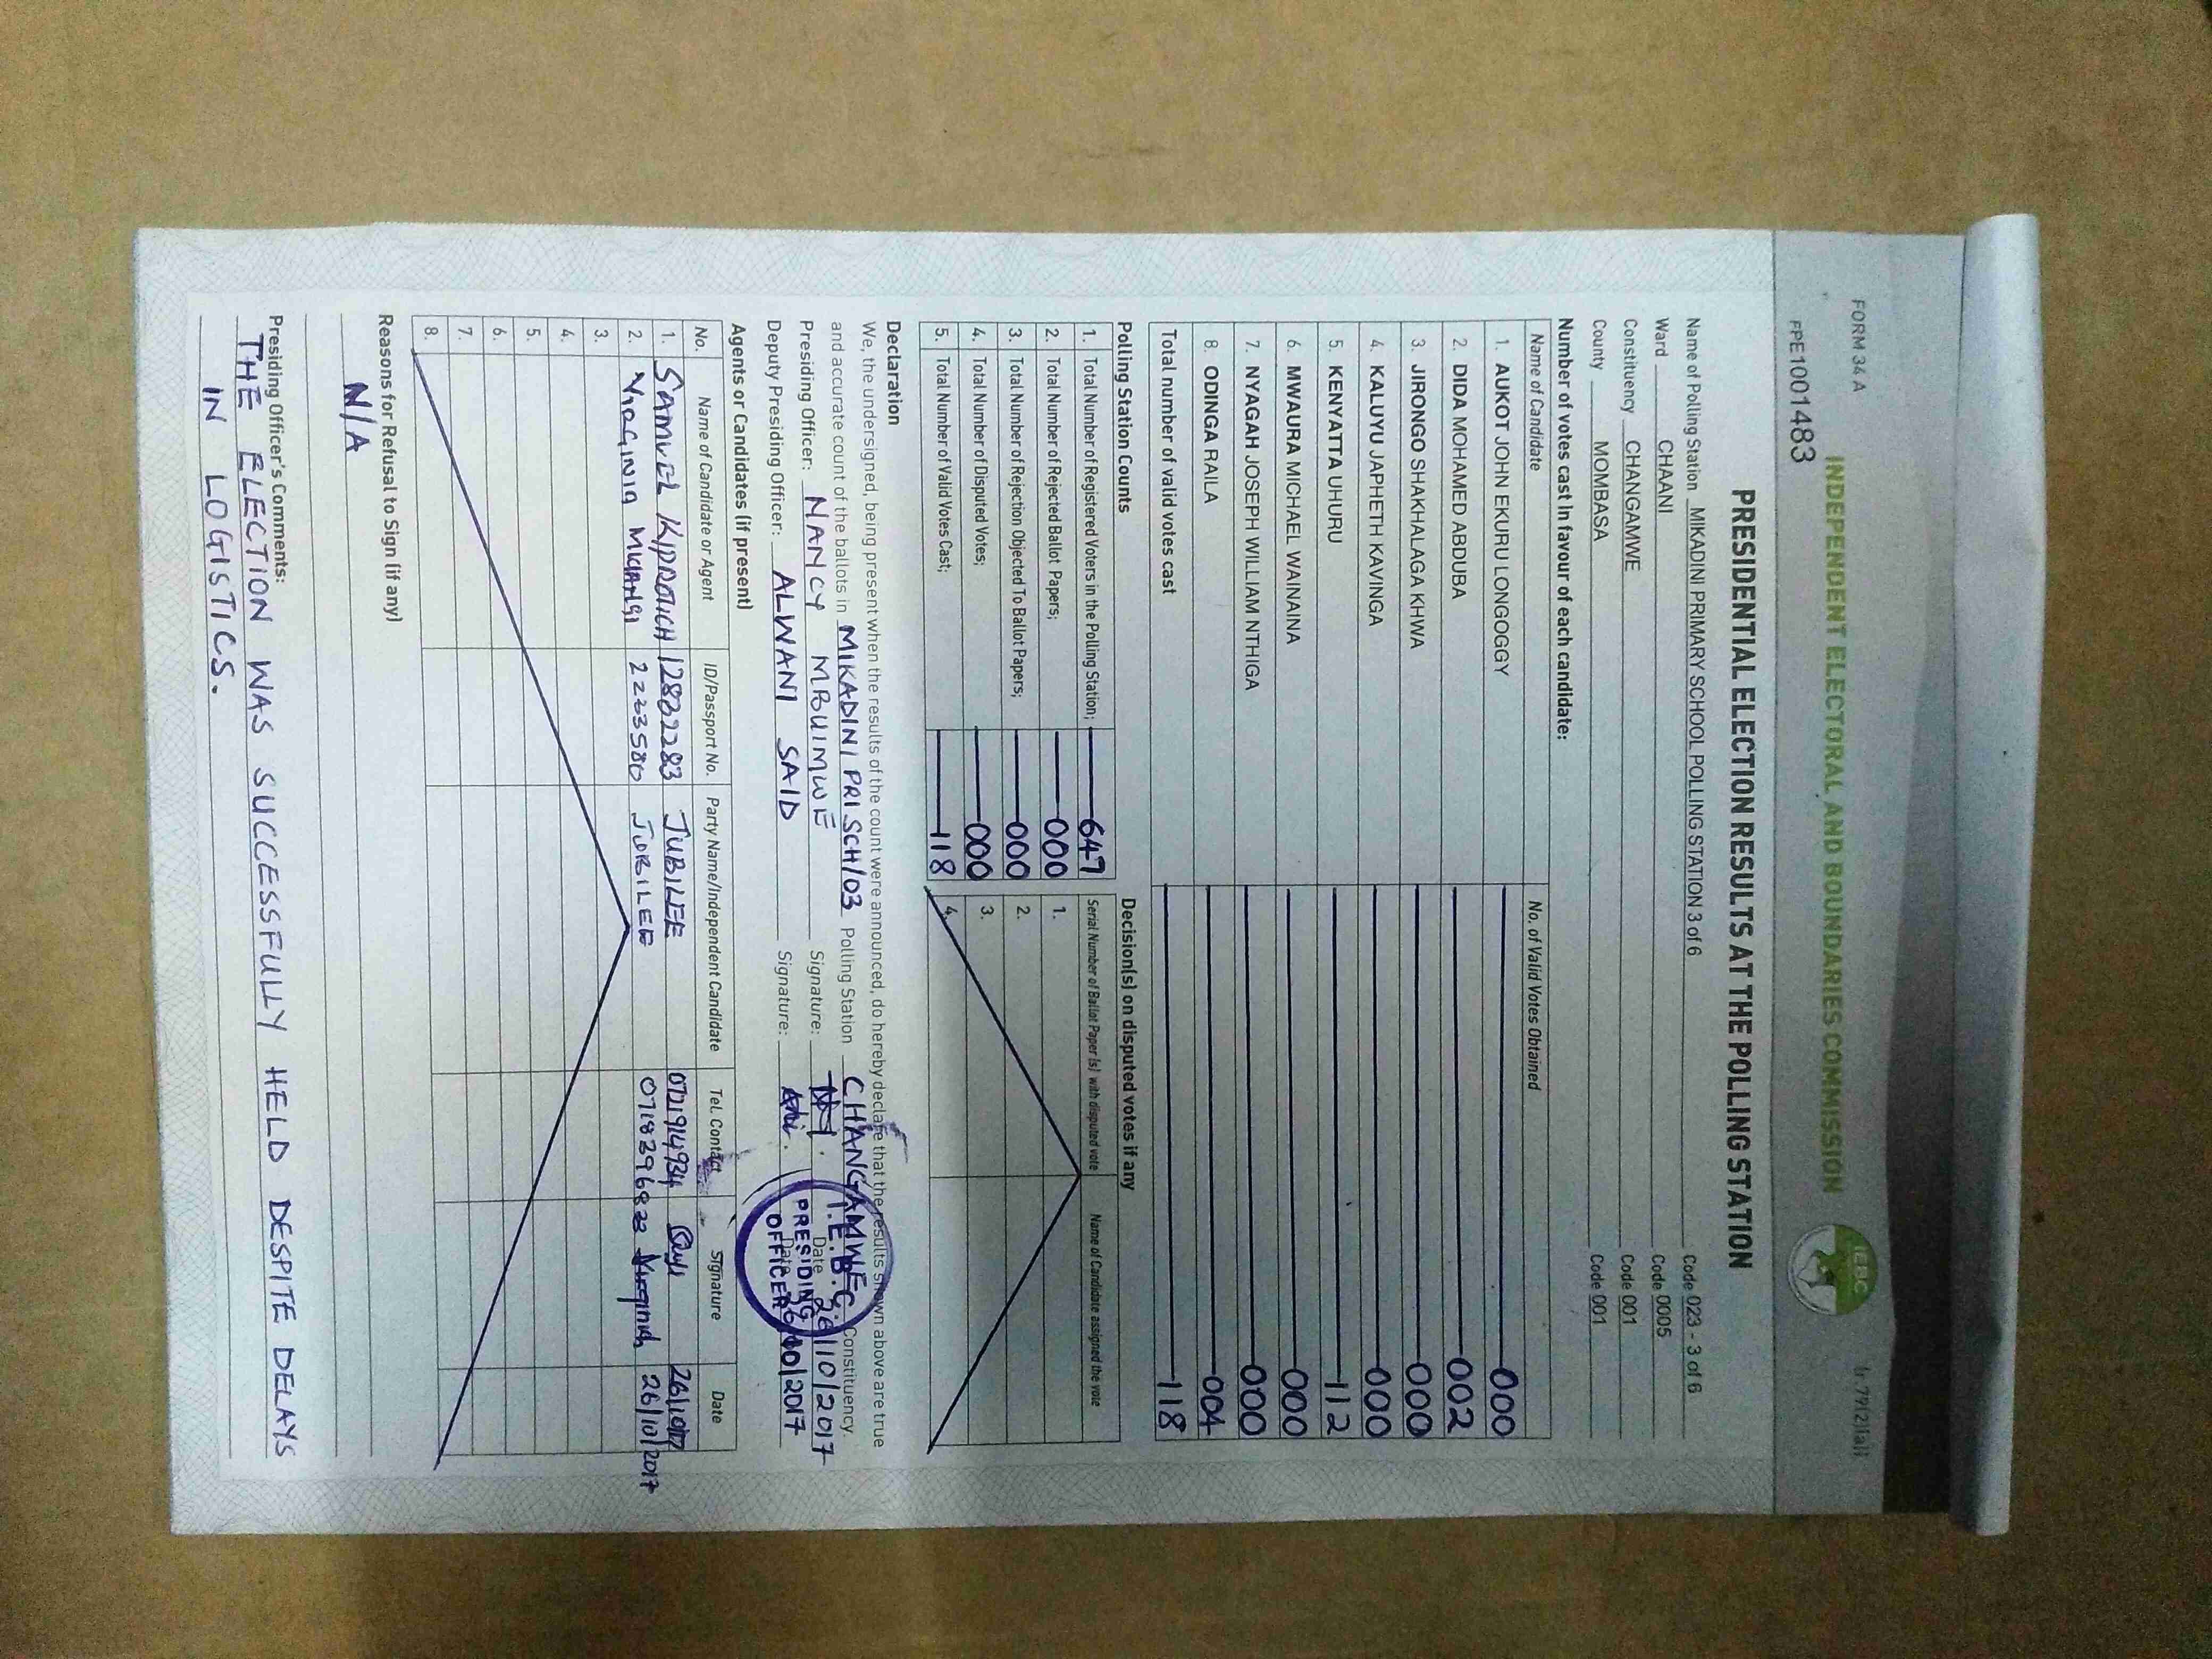 FORM 34 A (r 79(2)(a))
INDEPENDENT ELECTORAL AND BOUNDARIES COMMISSION
IEBC
PPE1001483
PRESIDENTIAL ELECTION RESULTS AT THE POLLING STATION
Name of Polling Station MIKADINI PRIMARY SCHOOL POLLING STATION 3 of 6 Code 023 - 3 of 6
Ward CHAANI Code 0005
Constituency CHANGAMWE Code 001
County MOMBASA Code 001
Number of votes cast in favour of each candidate:
Name of Candidate No. of Valid Votes Obtained
1. AUKOT JOHN EKURU LONGOGGY 000
2. DIDA MOHAMED ABDUBA 002
3. JIRONGO SHAKHALAGA KHWA 000
4. KALUYU JAPHETH KAVINGA 000
5. KENYATTA UHURU 112
6. MWAURA MICHAEL WAINAINA 000
7. NYAGAH JOSEPH WILLIAM NTHIGA 000
8. ODINGA RAILA 004
Total number of valid votes cast 118
Polling Station Counts Decision(s) on disputed votes if any
1. Total Number of Registered Voters in the Polling Station; 647 Serial Number of Ballot Paper (s) with disputed vote Name of Candidate assigned the vote
2. Total Number of Rejected Ballot Papers; 000 1.
3. Total Number of Rejection Objected To Ballot Papers; 000 2.
4. Total Number of Disputed Votes; 000 3.
5. Total Number of Valid Votes Cast; 118 4.
Declaration
We, the undersigned, being present when the results of the count were announced, do hereby declare that the results shown above are true
and accurate count of the ballots in MIKADINI PRI SCH/03 Polling Station CHANGAMWE Constituency.
Presiding Officer: NANCY MBUIMWE Signature: Date 26/10/2017
Deputy Presiding Officer: ALWANI SAID Signature: Date 26/10/2017
I.E.B.C
PRESIDING
OFFICER
Agents or Candidates (if present)
No. Name of Candidate or Agent ID/Passport No. Party Name/Independent Candidate Tel. Contact Signature Date
1. SAMUEL KIPROTICH 12832283 JUBILEE 0721914934 26/10/17
2. VIRGINIA MUCHANGI 22235580 JUBILEE 0718396822 Virginia 26/10/2017
3.
4.
5.
6.
7.
8.
Reasons for Refusal to Sign (if any)
N/A
Presiding Officer's Comments:
THE ELECTION WAS SUCCESSFULLY HELD DESPITE DELAYS
IN LOGISTICS.